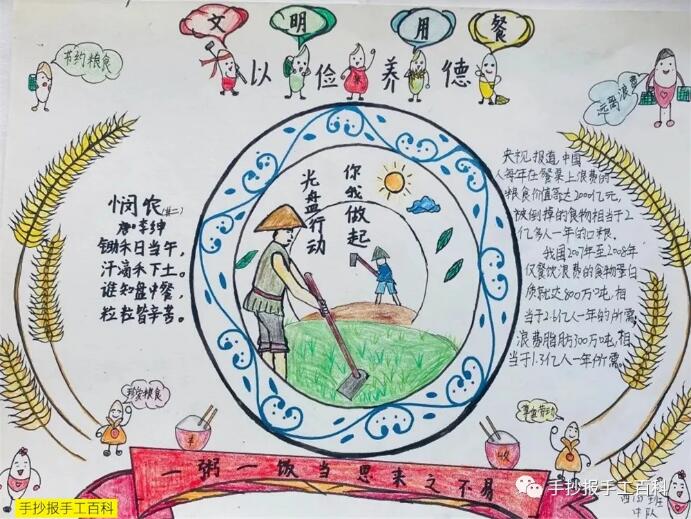 文明用餐
以俭养德
节约粮食
远离浪费
光盘行动
你我做起
悯农(其二)
唐 李绅
锄禾日当午,
汗滴禾下土。
谁知盘中餐,
粒粒皆辛苦。
央视报道,中国
人每年在餐桌上浪费的
粮食价值高达2000亿元,
被倒掉的食物相当于2
亿多人一年的口粮。
我国2007年至2008年
仅餐饮浪费的食物蛋白
质就达800万吨,相
当于2.6亿人一年的所需,
浪费脂肪300万吨,相
当于1.3亿人一年所需。
珍爱粮食
一粥一饭当思来之不易
中队
手抄报手工百科
手抄报手工百科